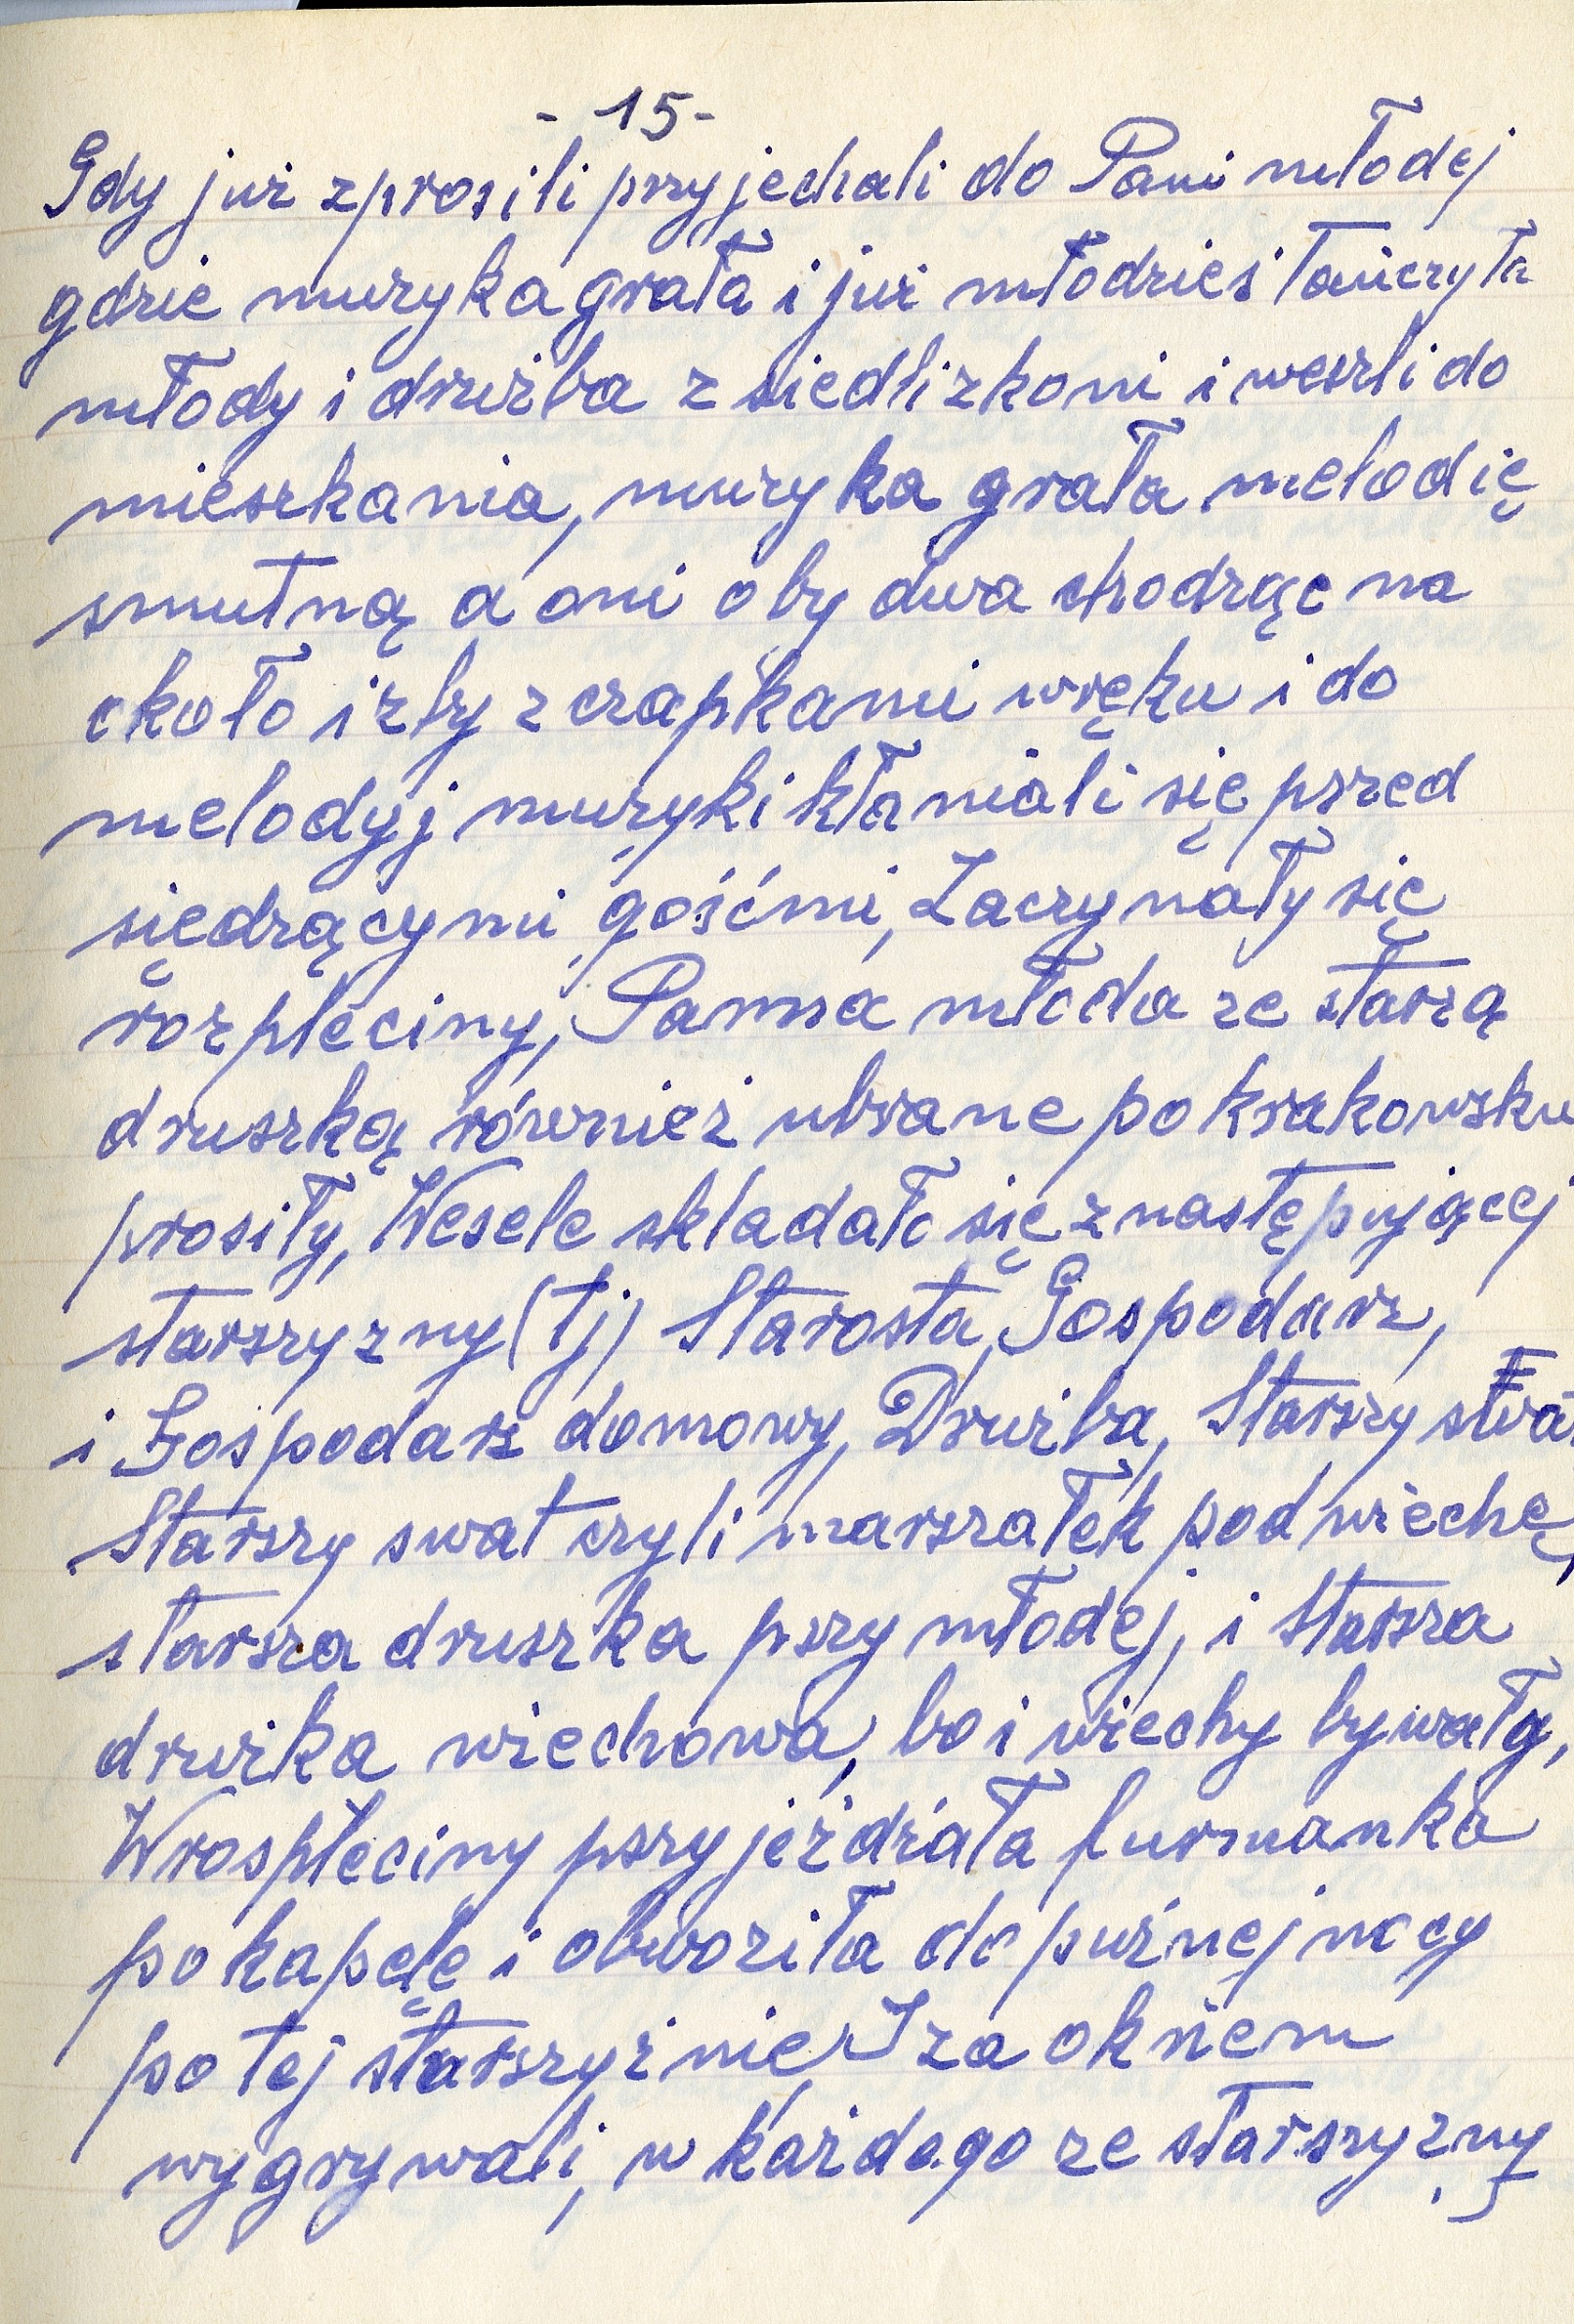 - 15 -
Gdy już zprosili przyjechali do Pani młodej
gdzie muzyka grała i już młodzież tańczyła
młody i drużba z siedli z koni i weszli do
mieszkania, muzyka grała melodię
smutną a oni oby dwa chodząc na
około izby z czapkami w ręku i do
melodyj muzyki kłaniali się przed
siędzącymi gośćmi, Zaczynały się
rozpleciny, Panna młoda ze starzą
druszką również ubrane po krakowsku
prosiły, Wesele składało się z następującej
starszyzny (tj) Starosta, Gospodarz,
i Gospodarz domowy, Drużba, Starszy swat
Starszy swat czyli marszałek pod wiechę,
starsza druszka przy młodej, i starsza
drużka wiechowa, bo i wiechy bywały,
W rospleciny przyjeżdżała furmanka
po kapęlę i obwoziła do puźnej nocy
po tej starszyźnie I za oknem
wygrywali, u każdego ze starszyzny